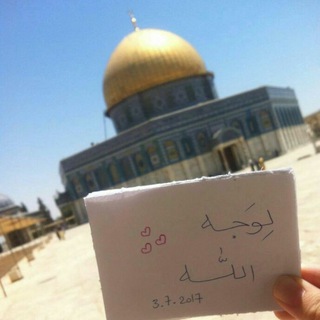 لِوَجه
الله
3.7.2017